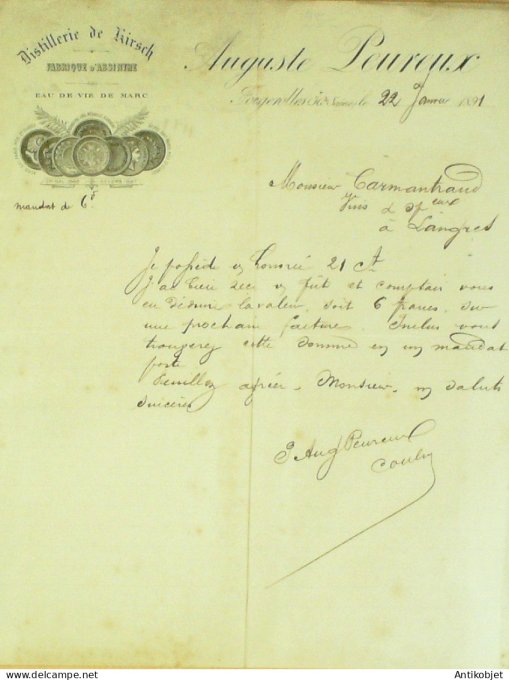 Distillerie de Kirsch
FABRIQUE D'ABSINTHE
EAU DE VIE DE MARC
mandat de 6f
Auguste Peureux
Fougerolles Hte Saône, le 22 Janvier 1891
Monsieur Carmantrand
Vins & Speux
à Langres
Je possède v honorée 21 ct
J'ai bien reçu v fût et comptais vous
en déduire la valeur, soit 6 francs, sur
une prochaine facture. Inclus vous
trouverez cette somme en un mandat
poste
Veuillez agréer, Monsieur, m saluts
sincères
P Aug Peureux